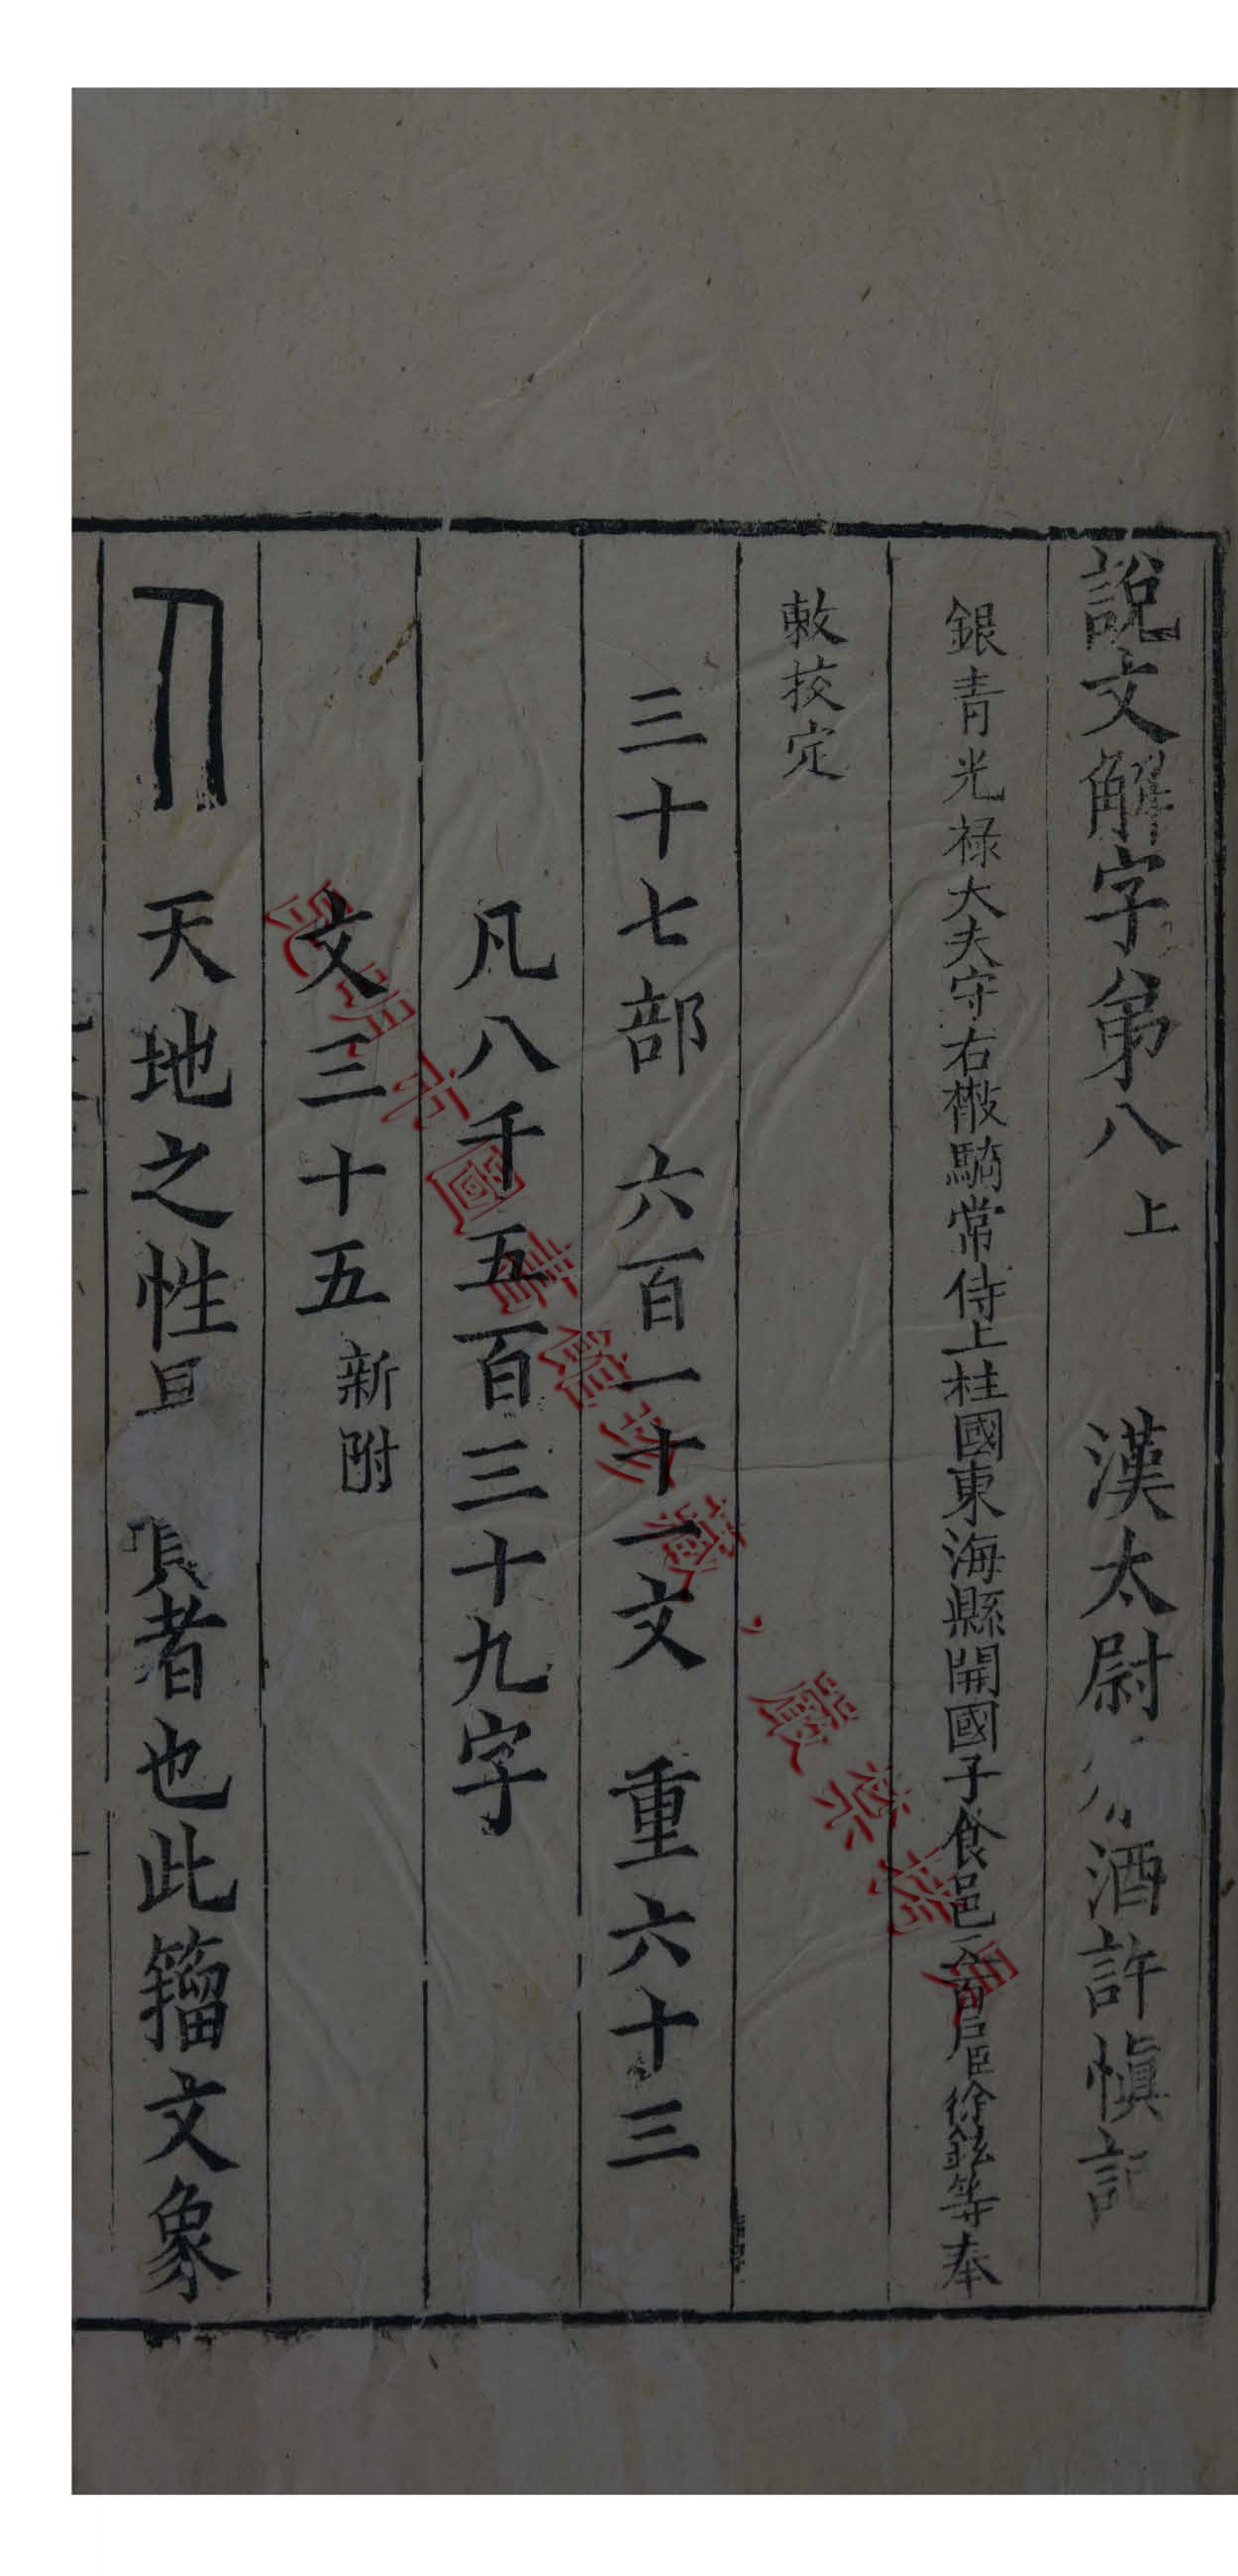 說文解字弟八上 漢太尉酒許慎記
銀青光禄大夫守右散騎常侍上柱國東海縣開國子食邑五百户臣徐鉉等奉
敕挍定
三十七部 六百一十一文 重六十三
凡八千五百三十九字
文三十五新附
天地之性者也此籀文象
昆明市圖書館珍藏，嚴禁拷貝